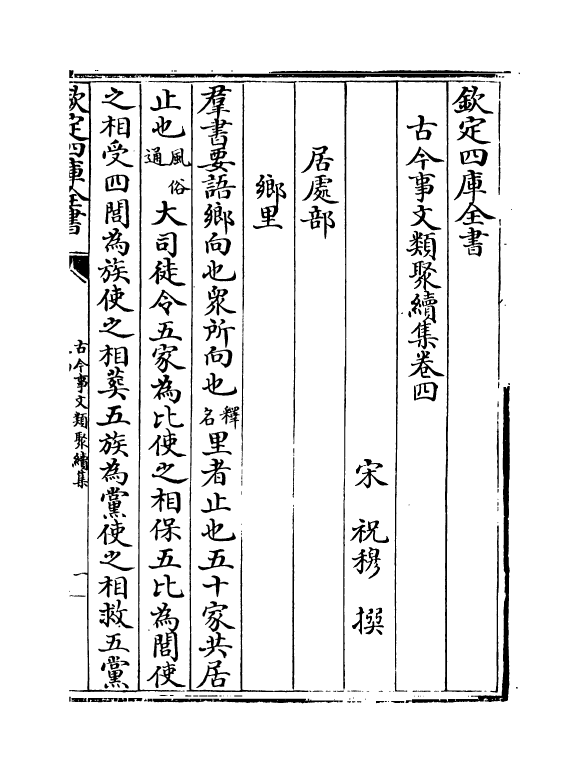 欽定四庫全書
古今事文類聚續集卷四
宋 祝穆 撰
居處部
鄉里
羣書要語鄉向也衆所向也釋名里者止也五十家共居
止也風俗通大司徒令五家為比使之相保五比為閭使
之相受四閭為族使之相葬五族為黨使之相救五黨
欽定四庫全書
古今事文類聚續集